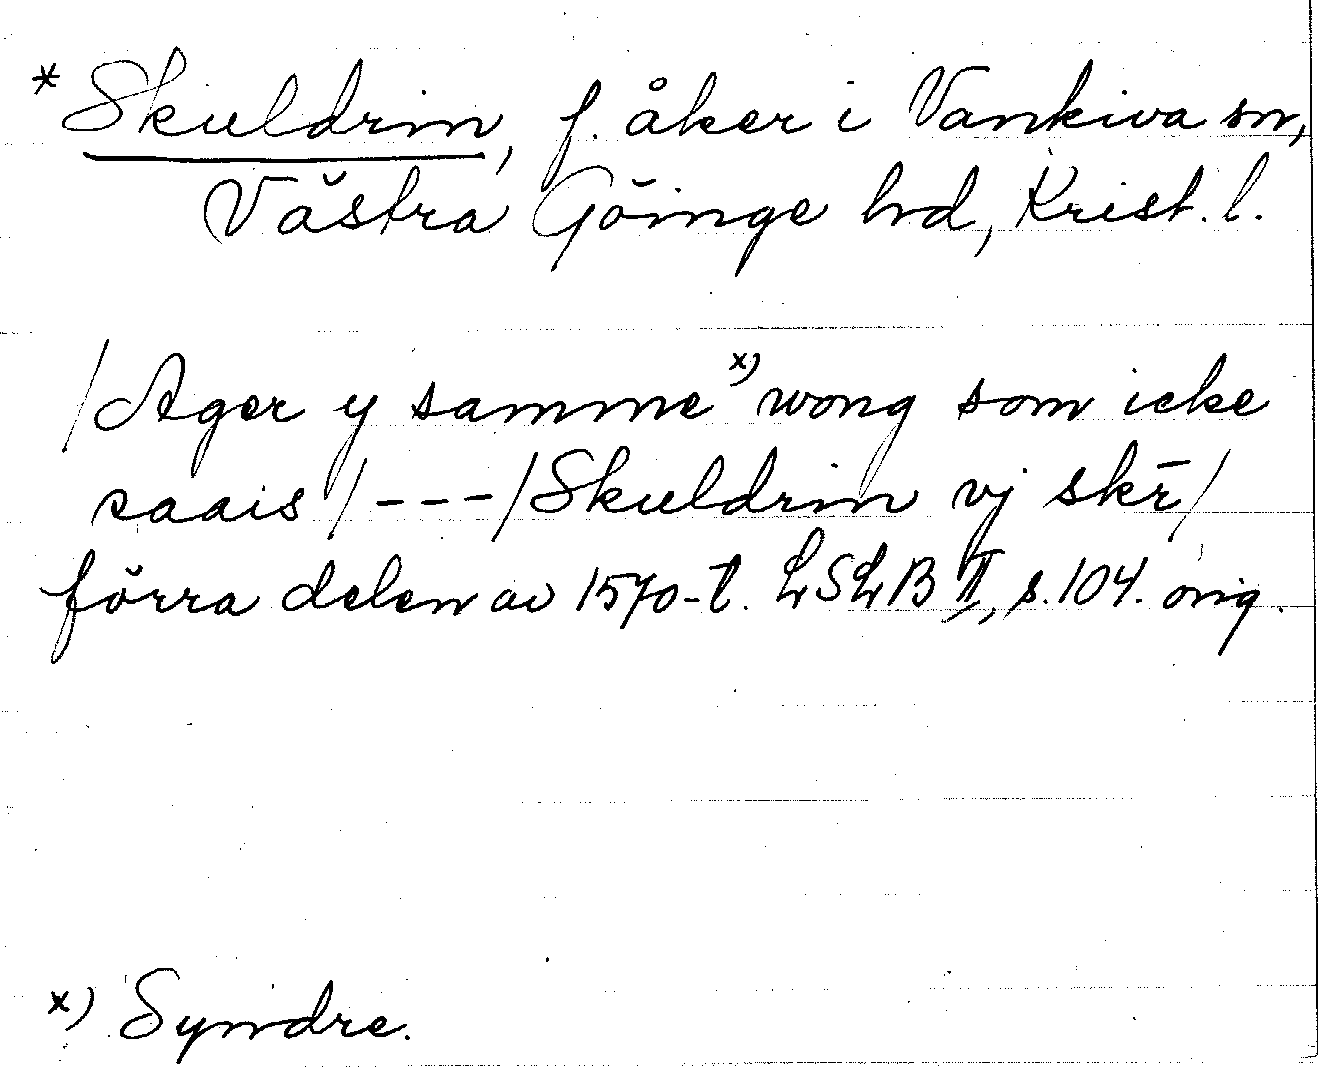 * Skuldrin, f. åker i Vankiva sn,
Västra Göinge hd, Krist. l.
/Ager y samme x) wong som icke
saais/---/Skuldrin vj skr̄/
förra delen av 1570-t. LSLB II, s. 104. orig.
x) Syndre.